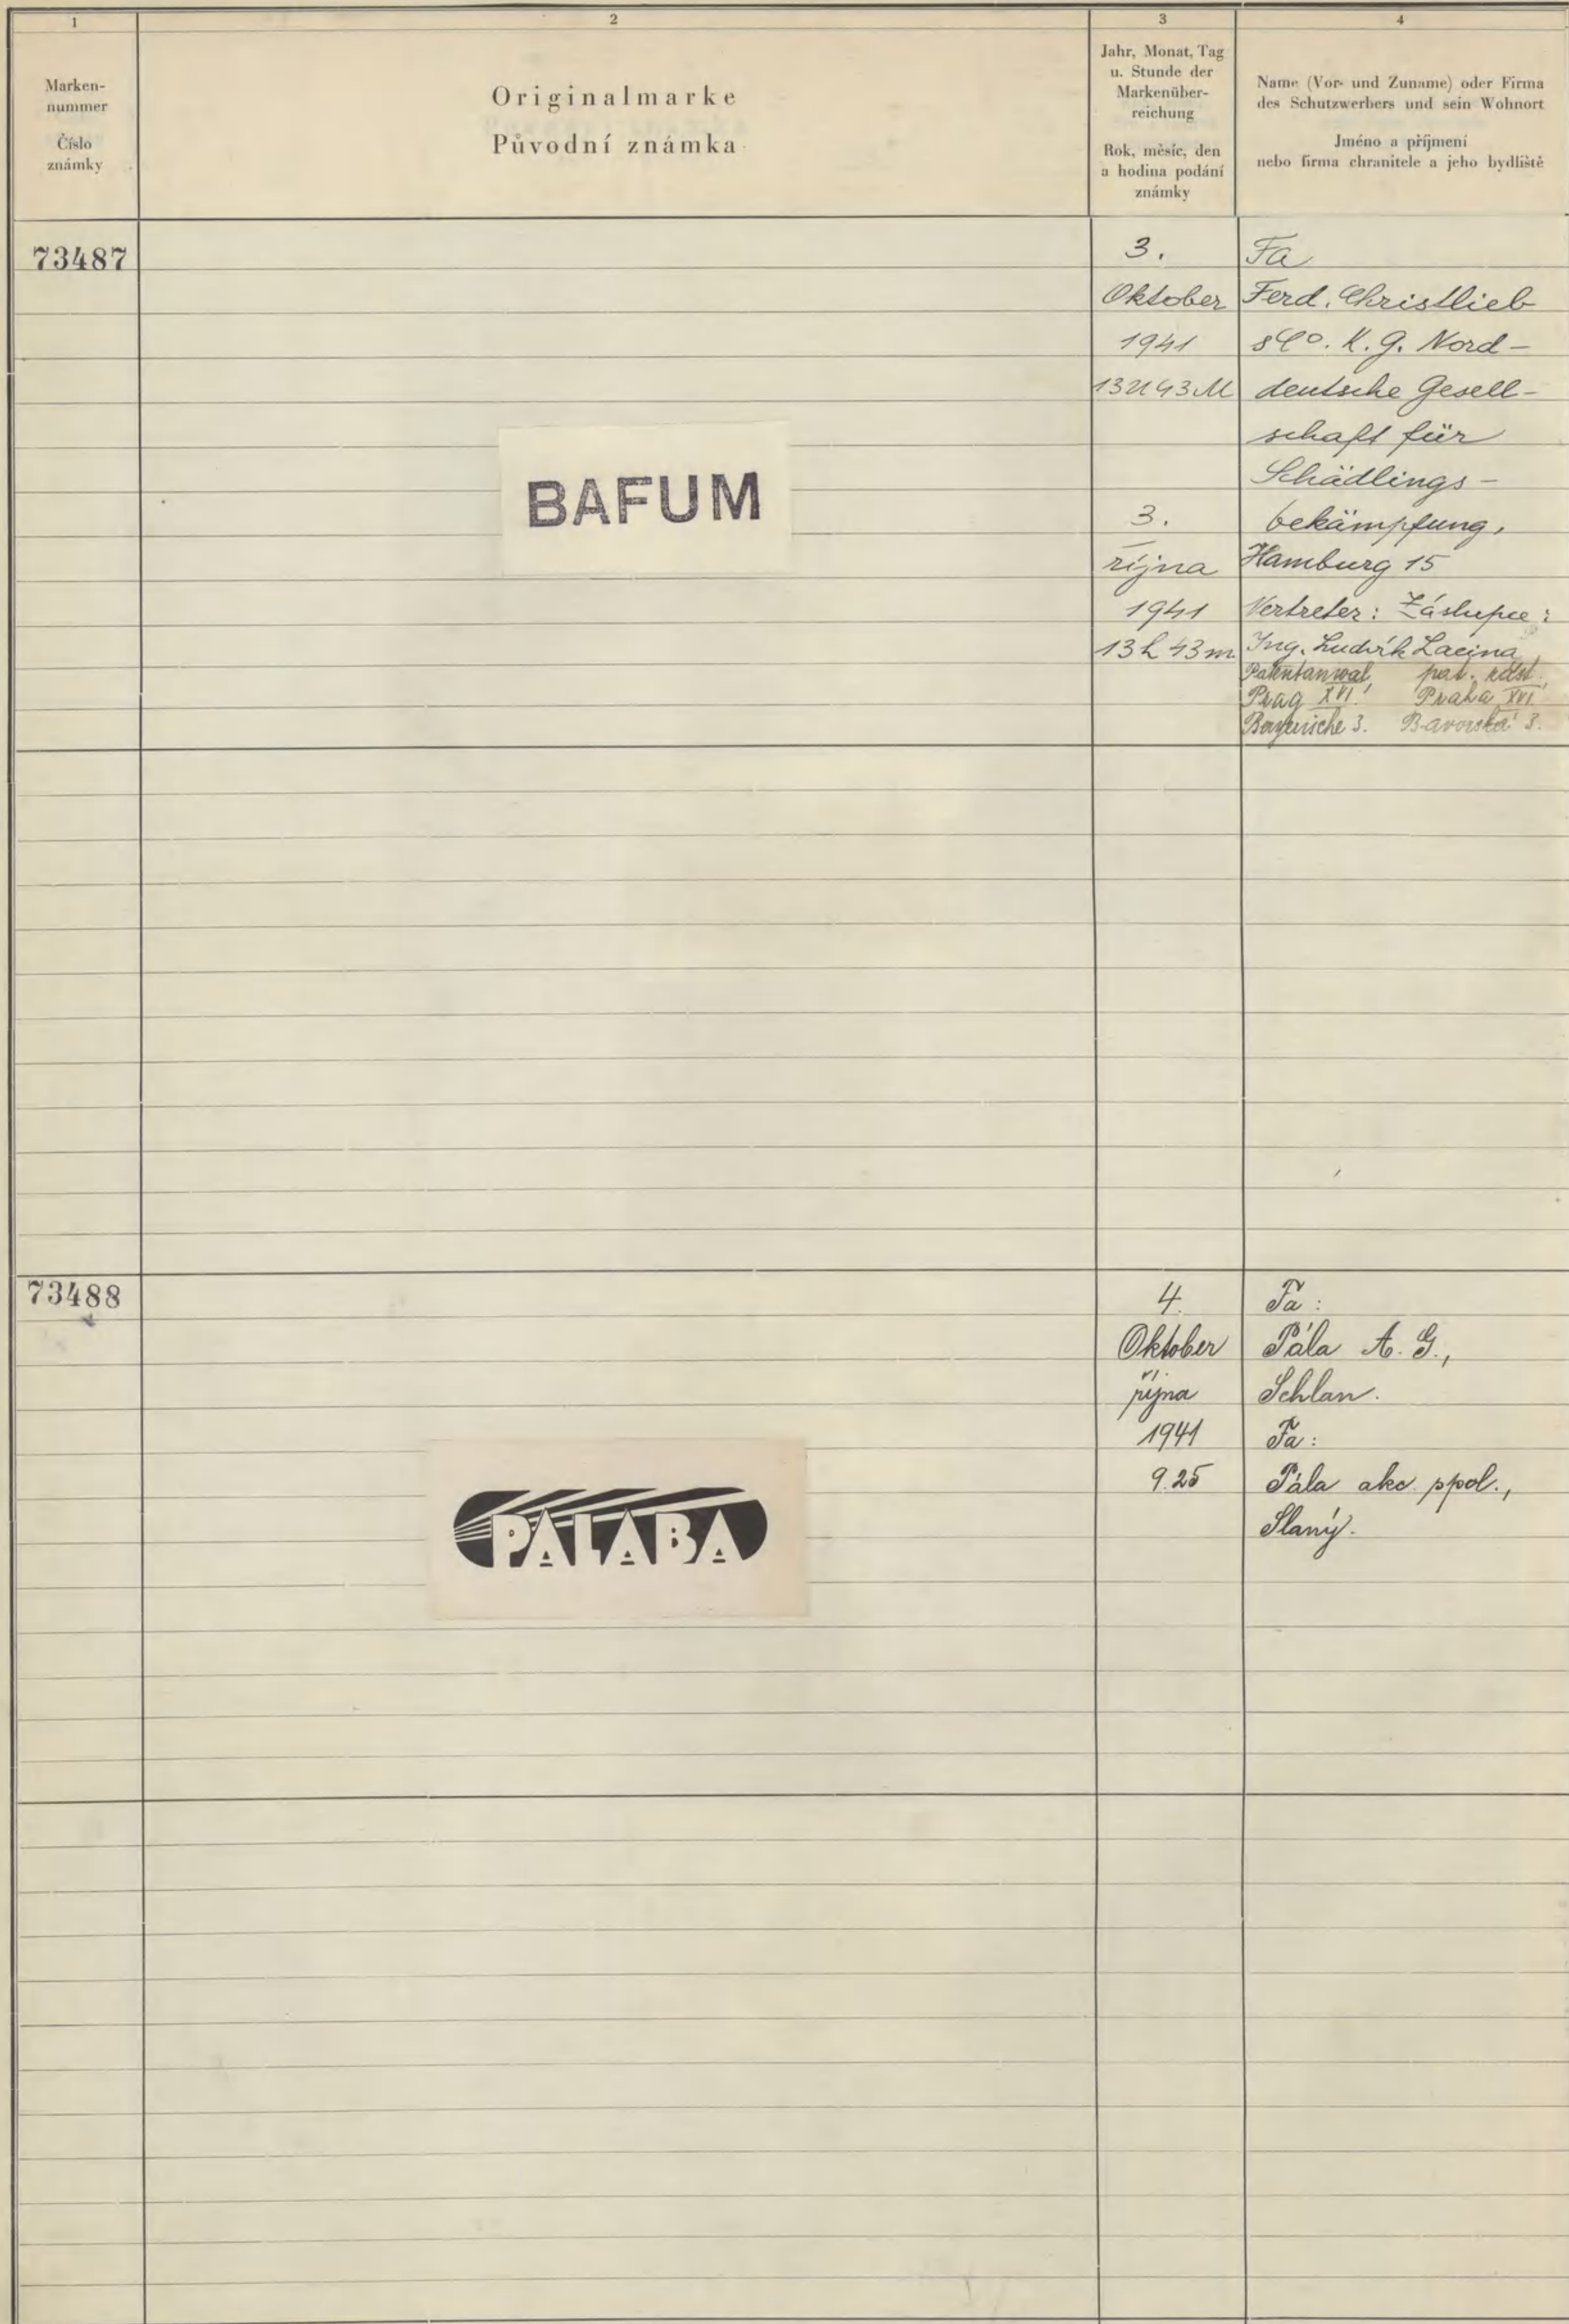 1
2
3
4
Marken-
nummer
Číslo
známky
Originalmarke
Původní známka
Jahr, Monat, Tag
u. Stunde der
Markenüber-
reichung
Rok, měsíc, den
a hodina podání
známky
Name (Vor- und Zuname) oder Firma
des Schutzwerbers und sein Wohnort
Jméno a příjmení
nebo firma chranitele a jeho bydliště
73487
BAFUM
3.
Oktober
1941
13U43M
3.
října
1941
13h43m
Fa
Ferd. Christlieb
&Co. K.G. Nord-
deutsche Gesell-
schaft für
Schädlings-
bekämpfung,
Hamburg 15
Vertreter: Zástupce:
Ing. Ludvík Lacina,
Patentanwal pat. zást.
Prag XVI. Praha XVI
Bayerische 3. Bavorská 3.
73488
PALABA
4.
Oktober
října
1941
9.25
Fa:
Pála A. G.,
Schlan.
Fa:
Pála akc. spol.,
Slaný.